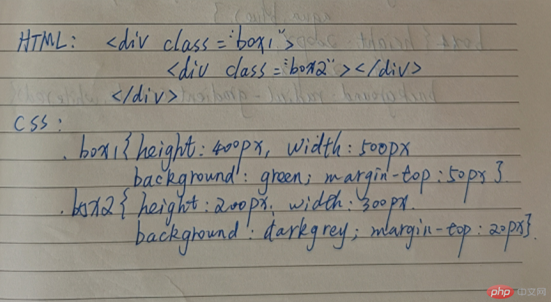 HTML: <div class="box1">
<div class="box2"></div>
</div>
CSS:
.box1{height:400px, width:500px
background: green; margin-top:50px}
.box2{height:200px; width:300px.
background: darkgrey; margin-top:20px}.
php 中文网